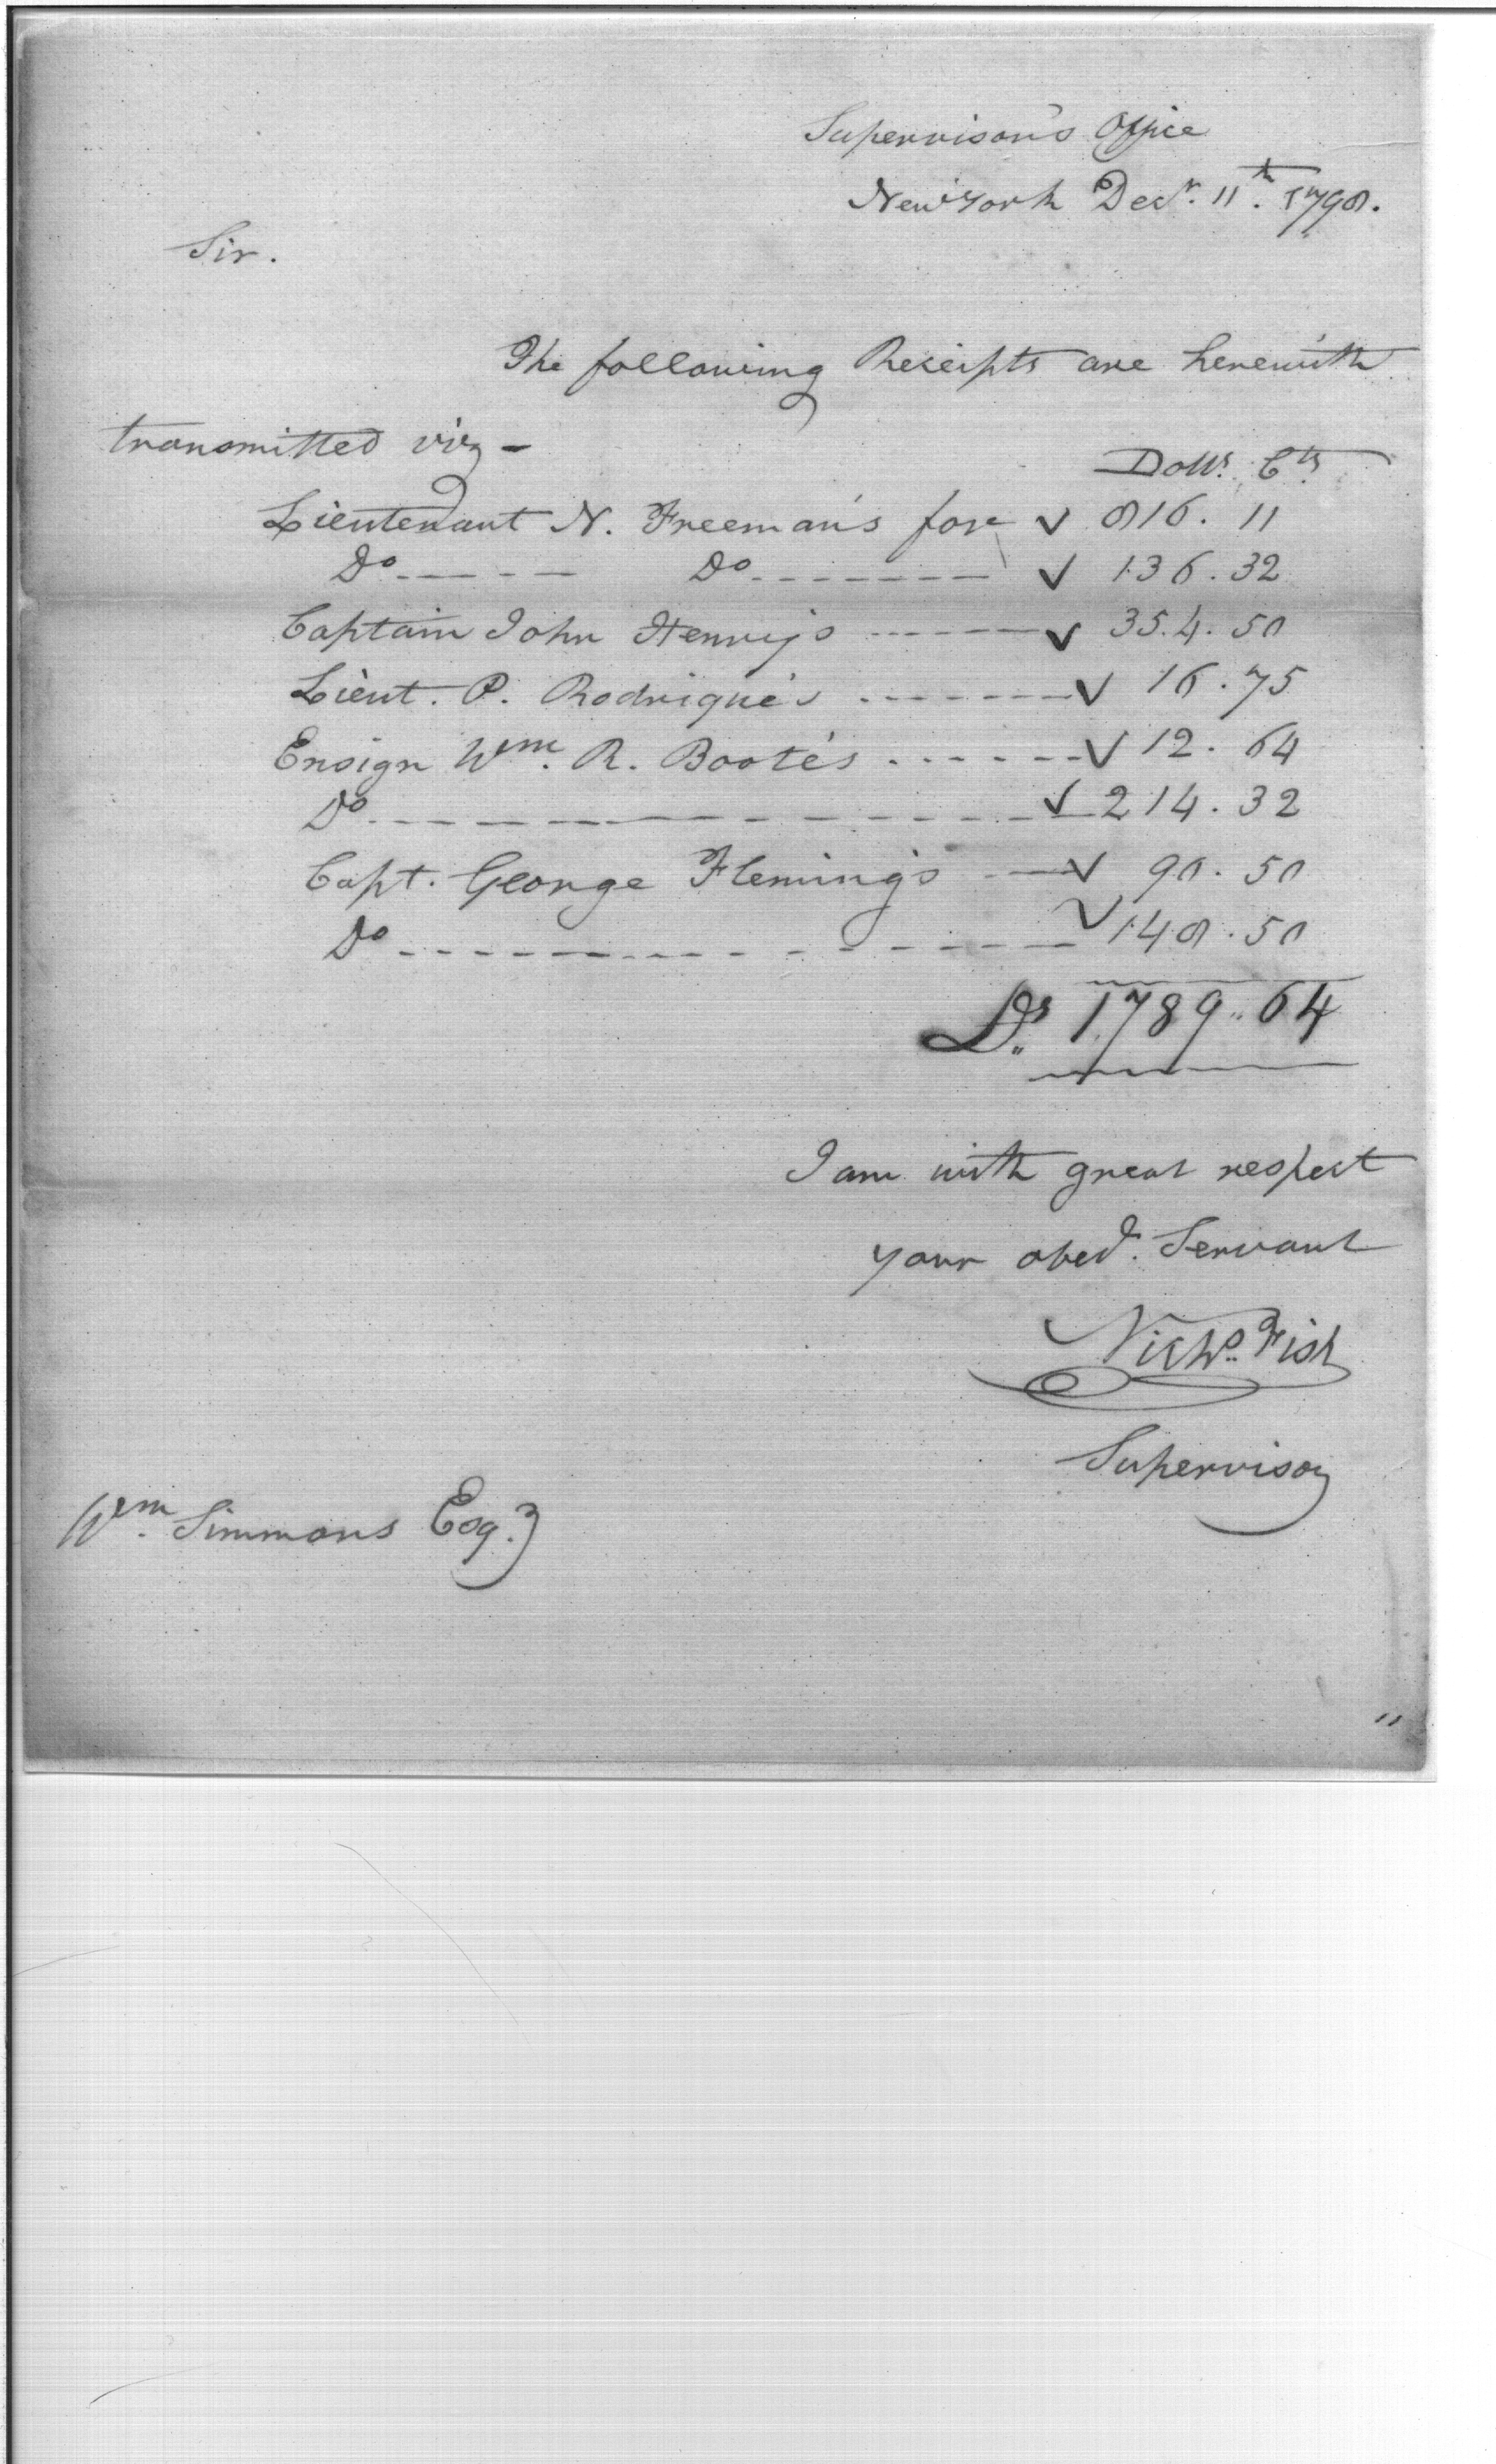 Supervisor's Office
New York Decr. 11th. 1798.
Sir.
The following Receipts are herewith
transmitted viz -
Dolls. Cts
Lieutenant N. Freeman's for ✓ 816. 11
Do. - - - - Do. - - - - - - - ✓ 136. 32
Captain John Henry's - - - - - - ✓ 354. 50
Lieut. P. Rodrigue's - - - - - - ✓ 16. 75
Ensign Wm. R. Boote's - - - - - - ✓ 12. 64
Do. - - - - - - - - - - - ✓ 214. 32
Capt. George Fleming's - - - ✓ 90. 50
Do - - - - - - - - - - - - ✓ 148. 50
Ds. 1789.. 64
I am with great respect
your obed. Servant
Nichs. Fish
Supervisor
Wm. Simmons Esq.